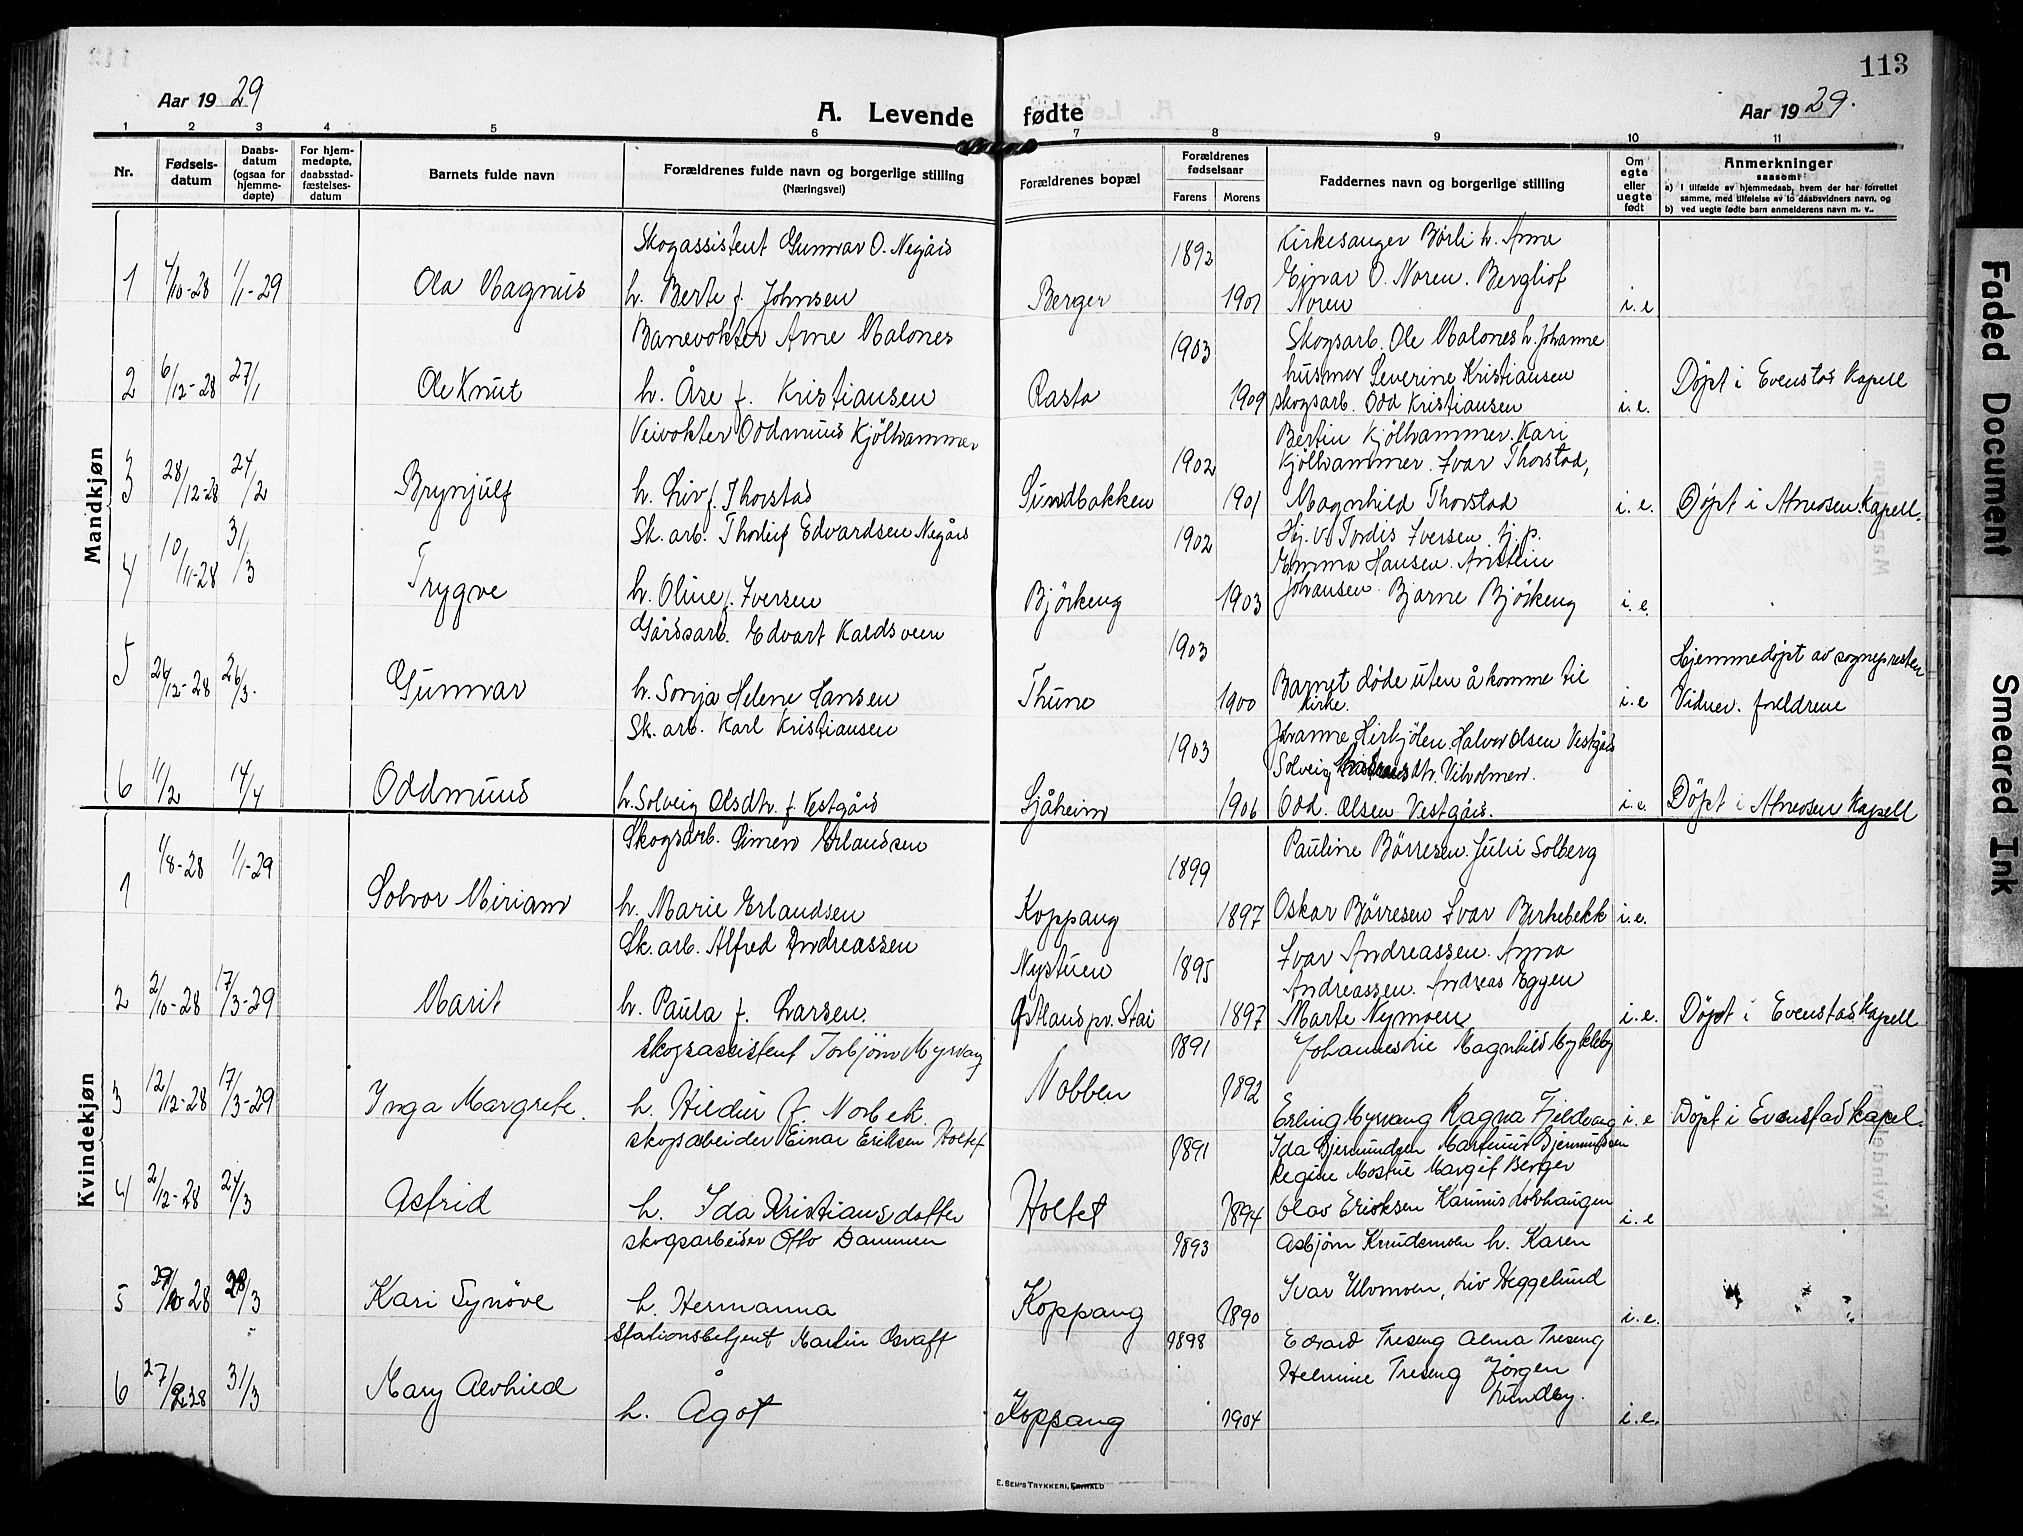 113
Aar 1929
A. Levende fødte
Aar 1929.
1 2 3 4 5 6 7 8 9 10 11
Nr.
Fødsels-
datum
Daabs-
datum
(ogsaa for
hjemme-
døpte)
For hjem-
medøpte,
daabsstad-
fæstelses-
datum
Barnets fulde navn
Forældrenes fulde navn og borgerlige stilling
(Næringsvei)
Forældrenes bopæl
Forældrenes
fødselsaar
Farens Morens
Faddernes navn og borgerlige stilling
Om
egte
eller
uegte
født
Anmerkninger
saasom:
a) i tilfælde av hjemmedaab, hvem der har forrettet
samme, med tilføielse av to daabsvidners navn, og
b) ved uegte fødte barn anmelderens navn m. v..
Mandkjøn
Skogassistent Gunnar O. Negård 1892 Kirkesanger Børli h. Anna
Einar O. Noren. Bergliot
1 4/10-28 1/1-29 Ola Magnus h. Berte f. Johnsen Berger 1901 Noren i.e
Banevokter Arne Malones 1903 Skogsarb. Ole Malones h. Johanne
husmor Severine Kristiansen
2 6/12-28 27/1 Ole Knut h. Åse f. Kristiansen Rasta 1909 skogsarb. Odd Kristiansen i.e. Döpt i Evenstad Kapell
Veivokter Oddmund Kjölhammer Bertin Kjölhammer. Kari
1902 Kjölhammer. Ivar Thorstad,
3 28/12-28 24/2 Brynjulf h. Liv f. Thorstad Sundbakken 1901 Magnhild Thorstad i.e. Döpt i Atneosen Kapell.
Sk. arb. Thorleif Edvardsen Negård 1902 Hj. v. Tordis Iversen tj. p.
Emma Hansen. Arnstein
4 10/11-28 31/3 Trygve h. Oline f. Iversen Björkeng 1903 Johansen. Bjarne Björkeng i.e.
Gårdsarb. Edvart Kaldsveen 1903 Hjemmedöpt av sognepresten
5 26/12-28 26/3. Gunnar h. Sonja Helene Hansen Thune 1900 Barnet döde uten å komme til
kirke. i.e Vidner. foreldrene
Sk. arb. Karl Kristiansen 1903 Johanne Hirkjölen, Halvor Olsen Vestgård
Solveig
6 11/2 14/4 Oddmund h. Solveig Olsdtr. f. Vestgård Sjåheim 1906 Odd. Olsen Vestgård. i.e. Döpt i Atneosen Kapell
Kvindekjøn
Skogsarb. Simen Erlandsen 1899 Pauline Börresen. Julie Solberg
1 1/8-28 1/1-29 Solvor Miriam h. Marie Erlandsen Koppang 1897 Oskar Börresen Ivar Birkebekk i.e.
Sk. arb. Alfred Andreassen Nystuen 1895 Ivar Andreassen. Anna
Andreassen. Andreas Eggen
2 2/10-28 17/3-29 Marit h. Paula f. Larsen. Østland pr. Stai 1897 Marte Nymoen i.e. Döpt i Evenstad Kapell
skogsassistent Torbjörn Myrvang 1891 Johannes Lie Magnhild Mykleby
3 12/12-28 17/3-29 Inga Margrete. h. Hildur f. Norbek. Nobben 1892 Erling Myrvang Ragna Fjeldvang i e Döpt i Evenstad kapel.
skogsarbeider Einar Eriksen Holtet 1891 Ida Gjermundsen Martinus Gjermundsen
Regine Mostue Margit Berger
4 2/12-28 24/3 Astrid h. Ida Kristiansdatter Holtet 1894 Olav Eriksen Karinius Lövhaugen i.e
skogsarbeider Otto Dammen 1893 Asbjörn Knudsmoen h. Karen
5 28/3 Kari Synöve h. Hermanna Koppang 1890 Ivar Ulvmoen, Liv Heggelund i.e.
Stationsbetjent Martin 1898 Edvard Treseng Alma Treseng
Helmine Treseng Jörgen
6 31/3 Mary Alvhild h. Ågot Koppang 1904 Lundby. i.e.
E. SEM'S TRYKKERI, FR.HALD
Faded Document
Smeared Ink